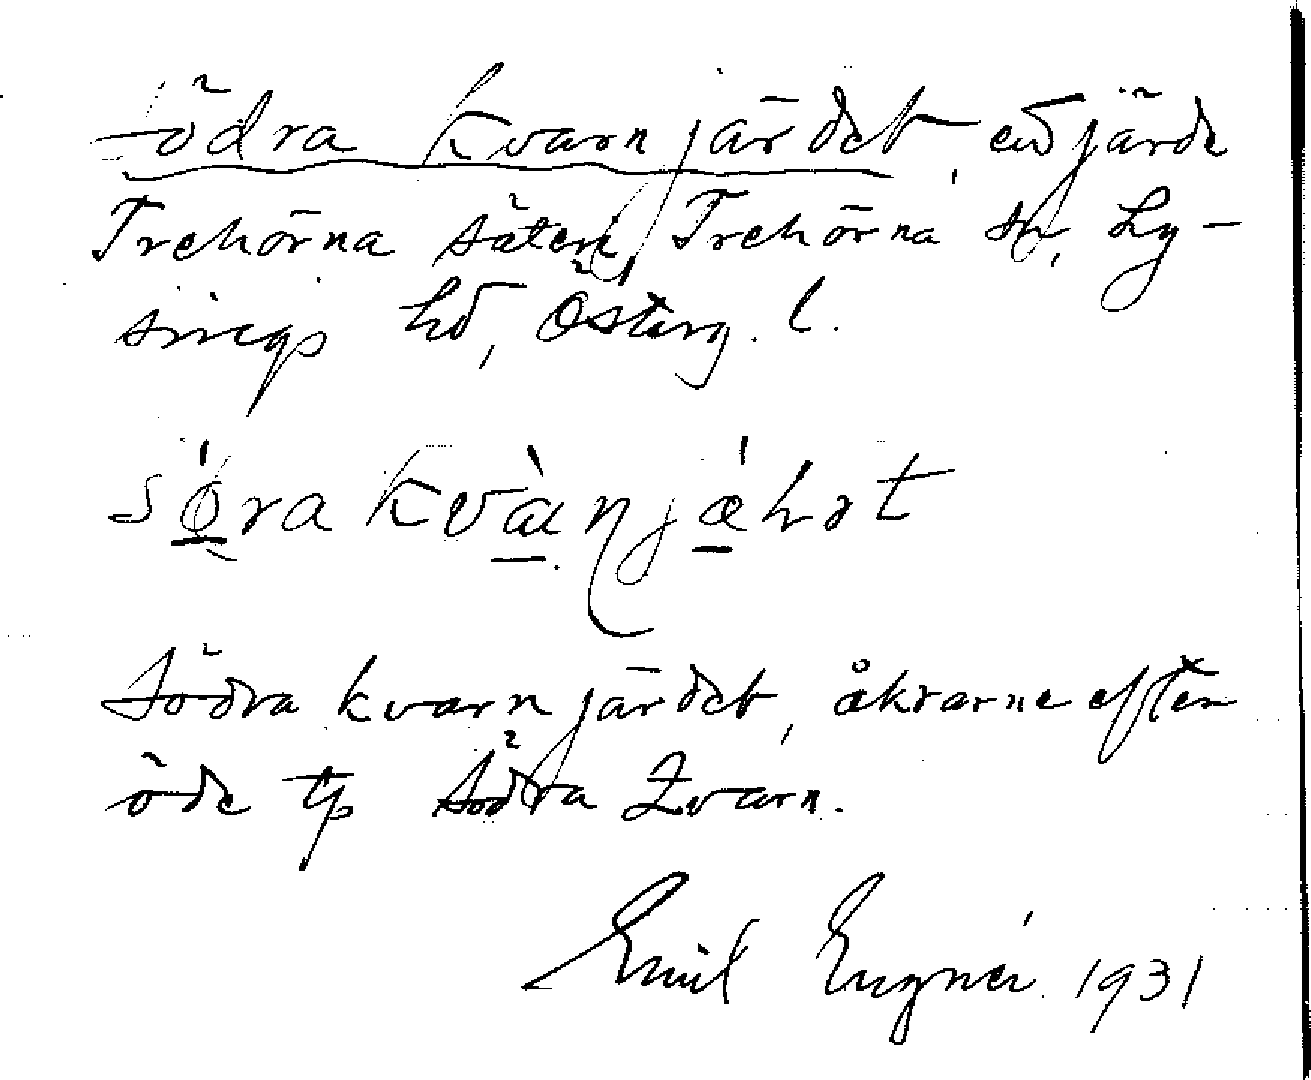 södra kvarnjärdet, ett järde
Trehörna säteri, Trehörna sn, Ly-
sings hd, Österg. l.
södra kvarnjärdet, åkrarne efter
öde tp södra Kvarn.
Emil Engnér 1931